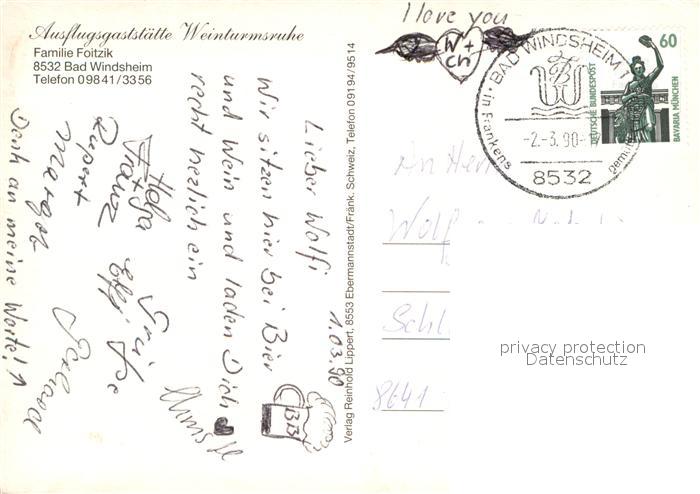 Ausflugsgaststätte Weinturmsruhe
Familie Foitzik
8532 Bad Windsheim
Telefon 09841/3356
I love you
W +
ch
BAD WINDSHEIM 1
in Frankens
-2.-3.90-
8532
60
DEUTSCHE BUNDESPOST
BAVARIA MÜNCHEN
1.03.90
Lieber Wolfi
Wir sitzen hier bei Bier
und Wein und laden Dich
recht herzlich ein
BB
Helga
Franz
Rupert
Margot
Gerhard
Denk an meine Worte!
Verlag Reinhold Lippert, 8553 Ebermannstadt/Fränk. Schweiz, Telefon 09194/9514
An Herrn
Schl
8641
privacy protection
Datenschutz